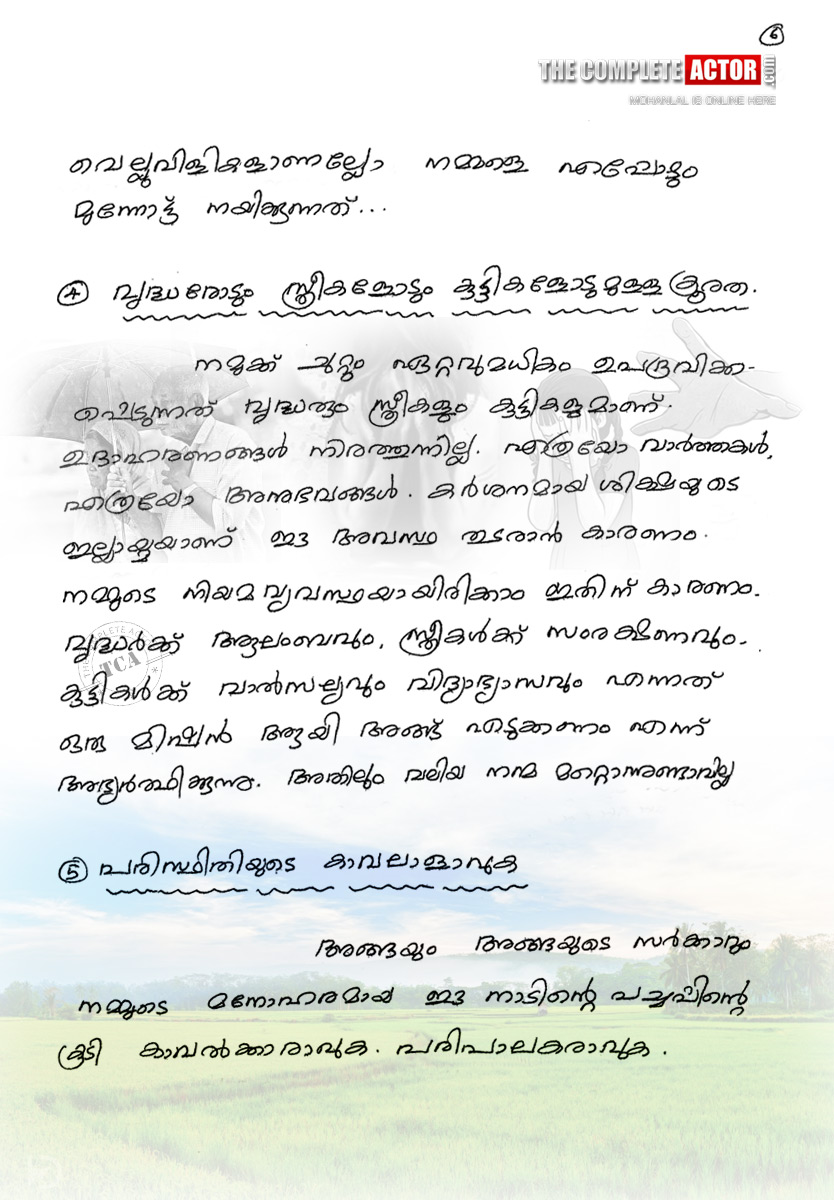 6
THE COMPLETE ACTOR .com
MOHANLAL IS ONLINE HERE
വെല്ലുവിളികളാണല്ലോ നമ്മളെ എപ്പോഴും
മുന്നോട്ട് നയിക്കുന്നത്...
4 വൃദ്ധരോടും സ്ത്രീകളോടും കുട്ടികളോടുമുള്ള ക്രൂരത.
നമുക്ക് ചുറ്റും ഏറ്റവുമധികം ഉപദ്രവിക്ക-
പ്പെടുന്നത് വൃദ്ധരും സ്ത്രീകളും കുട്ടികളുമാണ്.
ഉദാഹരണങ്ങൾ നിരത്തുന്നില്ല. എത്രയോ വാർത്തകൾ,
എത്രയോ അനുഭവങ്ങൾ. കർശനമായ ശിക്ഷയുടെ
ഇല്ലായ്മയാണ് ഈ അവസ്ഥ തുടരാൻ കാരണം.
നമ്മുടെ നിയമവ്യവസ്ഥയായിരിക്കാം ഇതിന് കാരണം.
വൃദ്ധർക്ക് ആലംബവും, സ്ത്രീകൾക്ക് സംരക്ഷണവും.
കുട്ടികൾക്ക് വാൽസല്യവും വിദ്യാഭ്യാസവും എന്നത്
ഒരു മിഷൻ ആയി അങ്ങ് എടുക്കണം എന്ന്
അഭ്യർത്ഥിക്കുന്നു. അതിലും വലിയ നന്മ മറ്റൊന്നുണ്ടാവില്ല
5 പരിസ്ഥിതിയുടെ കാവലാളാവുക
അങ്ങയും അങ്ങയുടെ സർക്കാരും
നമ്മുടെ മനോഹരമായ ഈ നാടിന്റെ പച്ചപ്പിന്റെ
കൂടി കാവൽക്കാരാവുക. പരിപാലകരാവുക.
TCA